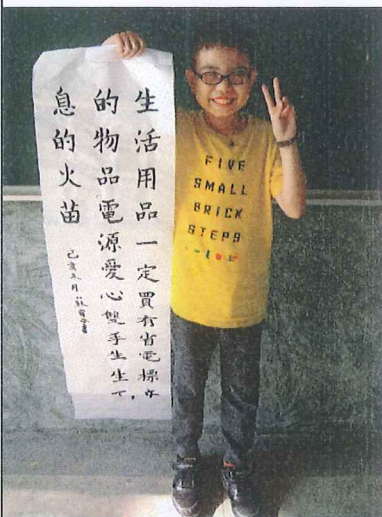 生活用品一定買有省電標章
的物品電源愛心雙手生生不
息的火苗
己亥年月蘇
FIVE
SMALL
BRICK
STEPS